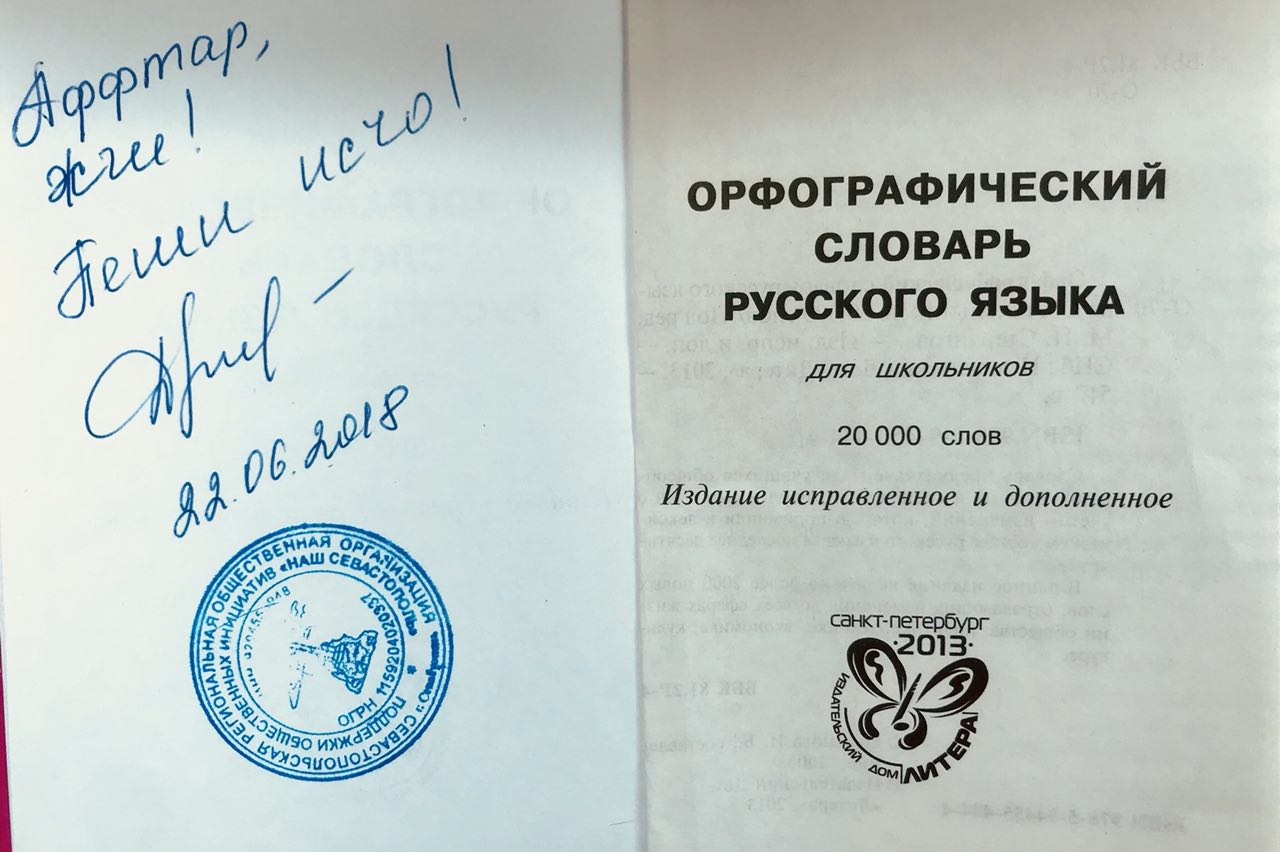 Аффтар,
жги!
Пеши исчо!
22.06.2018
СЕВАСТОПОЛЬСКАЯ РЕГИОНАЛЬНАЯ ОБЩЕСТВЕННАЯ ОРГАНИЗАЦИЯ
ПОДДЕРЖКИ ОБЩЕСТВЕННЫХ ИНИЦИАТИВ «НАШ СЕВАСТОПОЛЬ»
ОГРН 1159204020337
ОРФОГРАФИЧЕСКИЙ
СЛОВАРЬ
РУССКОГО ЯЗЫКА
ДЛЯ ШКОЛЬНИКОВ
20 000 СЛОВ
Издание исправленное и дополненное
САНКТ-ПЕТЕРБУРГ
·2013·
ИЗДАТЕЛЬСКИЙ ДОМ ЛИТЕРА